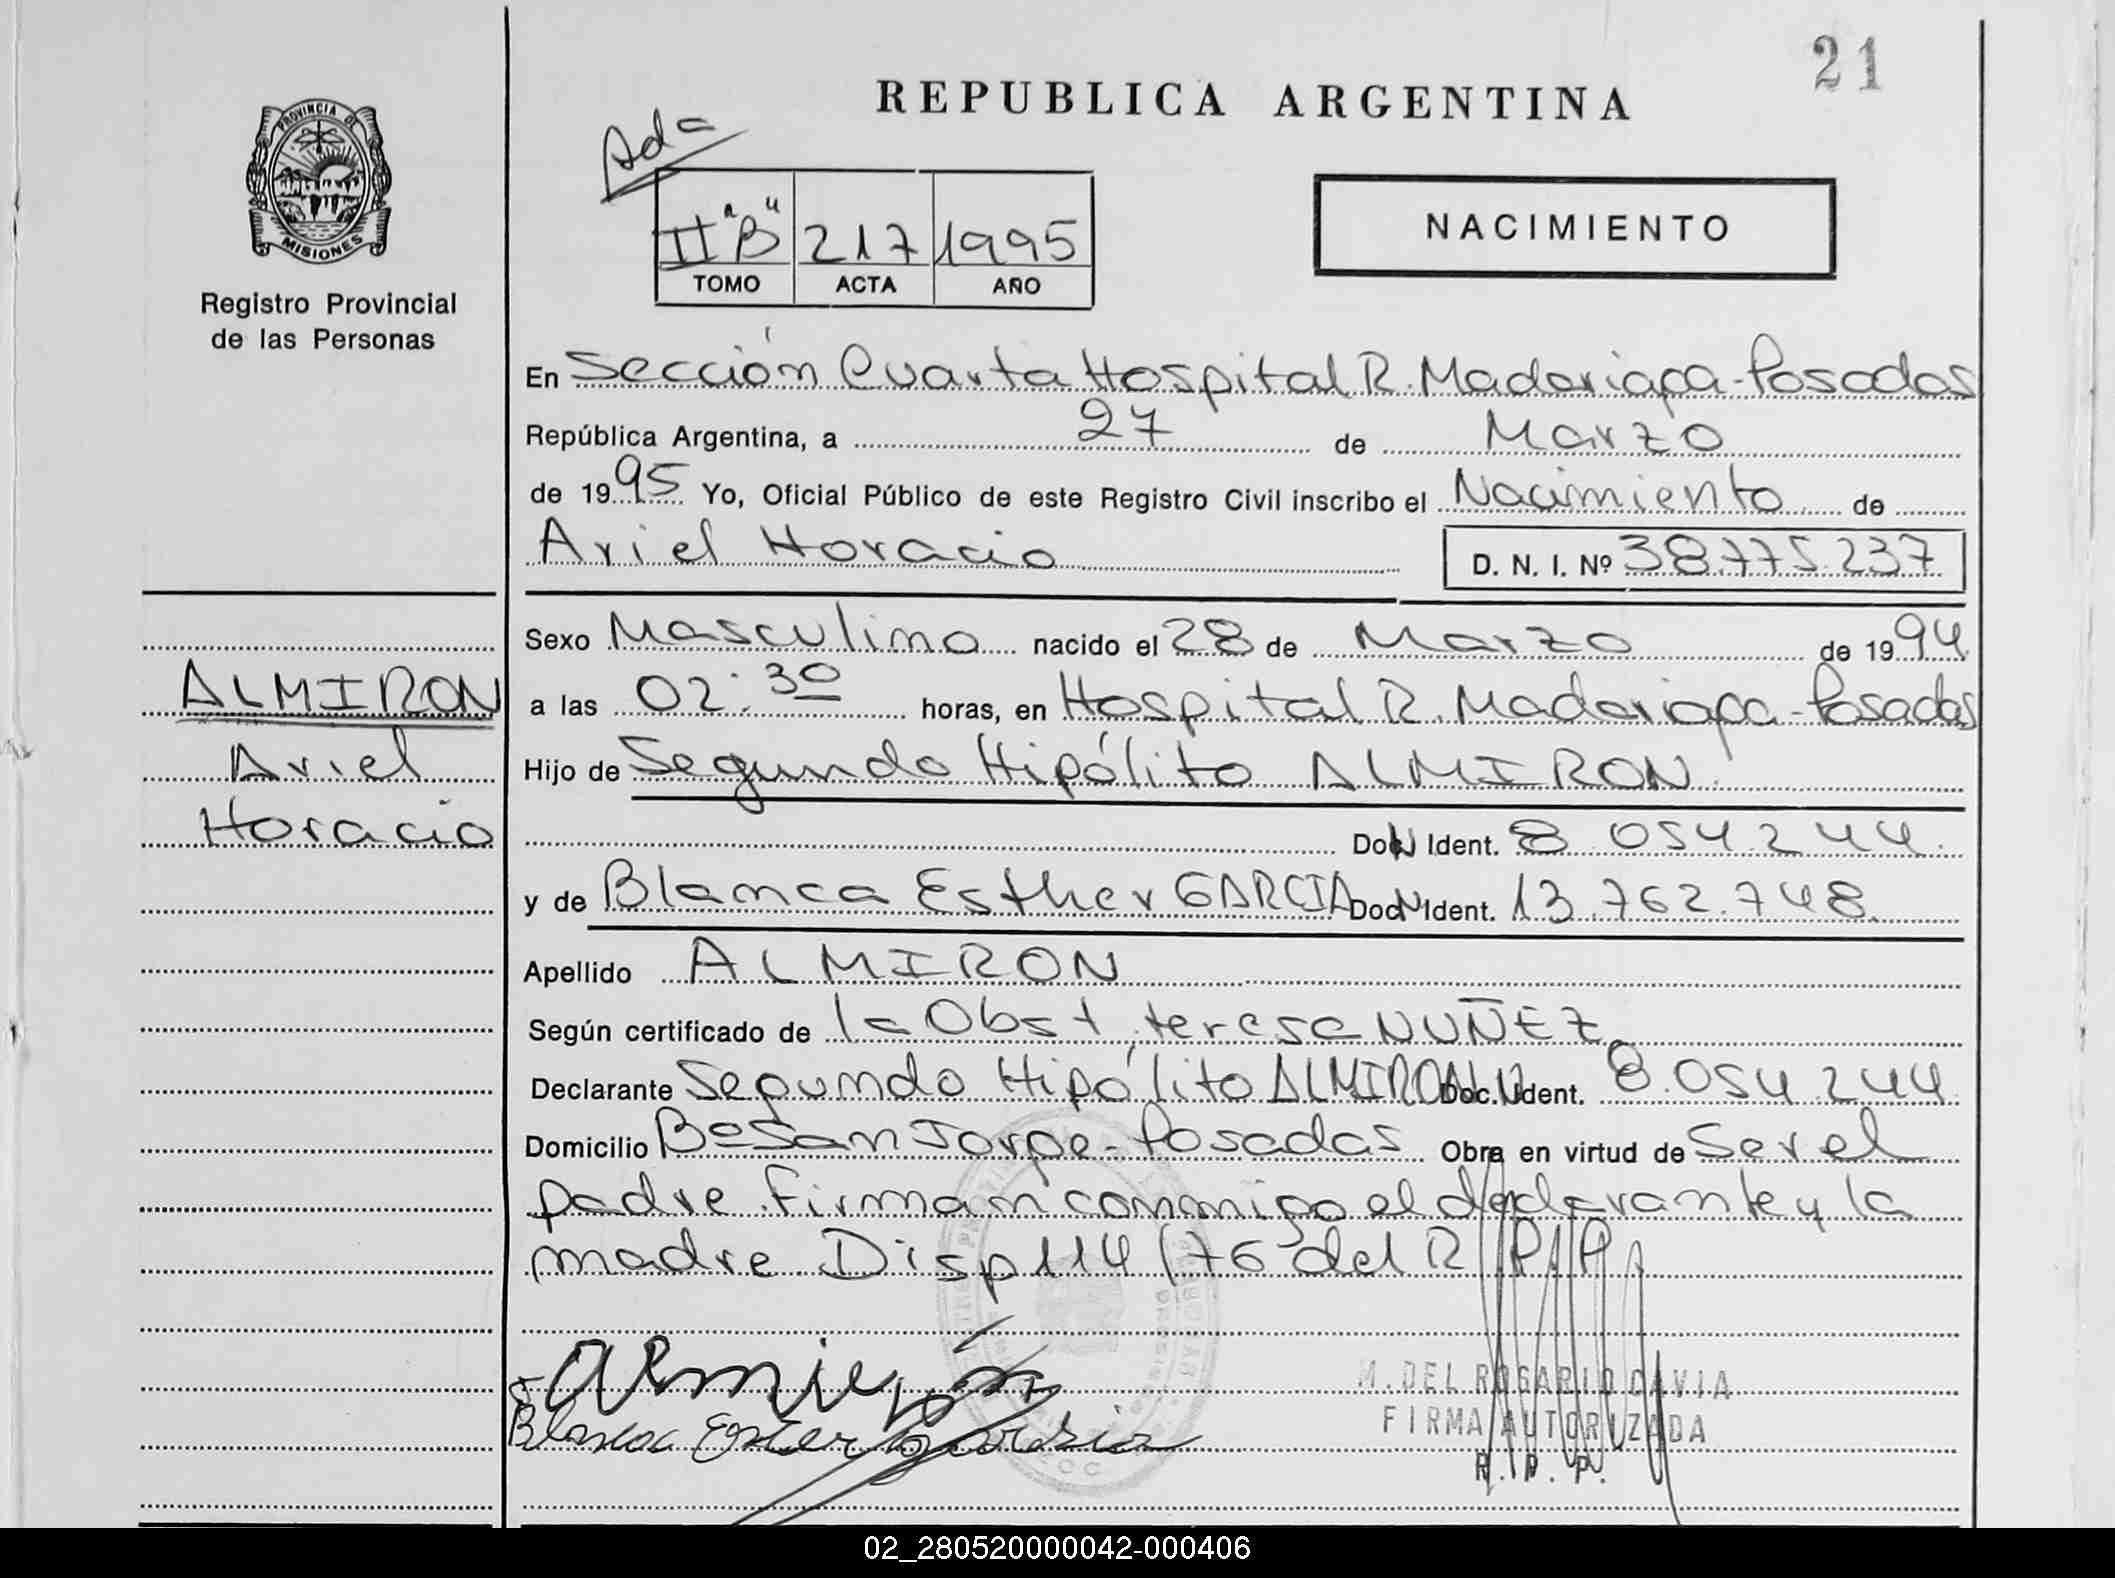 21
REPUBLICA ARGENTINA
PROVINCIA DE
MISIONES
Registro Provincial
de las Personas
Ad=
II "B" 217 1995
TOMO ACTA AÑO
NACIMIENTO
En Sección Cuarta Hospital R. Madariaga - Posadas
República Argentina, a 27 de Marzo
de 1995 Yo, Oficial Público de este Registro Civil inscribo el Nacimiento de
Ariel Horacio D. N. I. Nº 38.775.237
ALMIRON
Ariel
Horacio
Sexo Masculino nacido el 28 de Marzo de 1994
a las 02:30 horas, en Hospital R. Madariaga - Posadas
Hijo de Segundo Hipólito ALMIRON
Ident. 8.054.244
y de Blanca Esther GARCIA Ident. 13.762.748
Apellido ALMIRON
Según certificado de la Obst. teresa NUÑEZ
Declarante Segundo Hipólito ALMIRON Doc. Ident. 8.054.244
Domicilio Bº San Jorge - Posadas Obra en virtud de Ser el
padre. Firman conmigo el declarante y la
madre Disp 114/76 del R.P.P.
Almirón
Blanca Ester Garsia
M. DEL ROSARIO CAVIA
FIRMA AUTORIZADA
R. P. P.
02_280520000042-000406